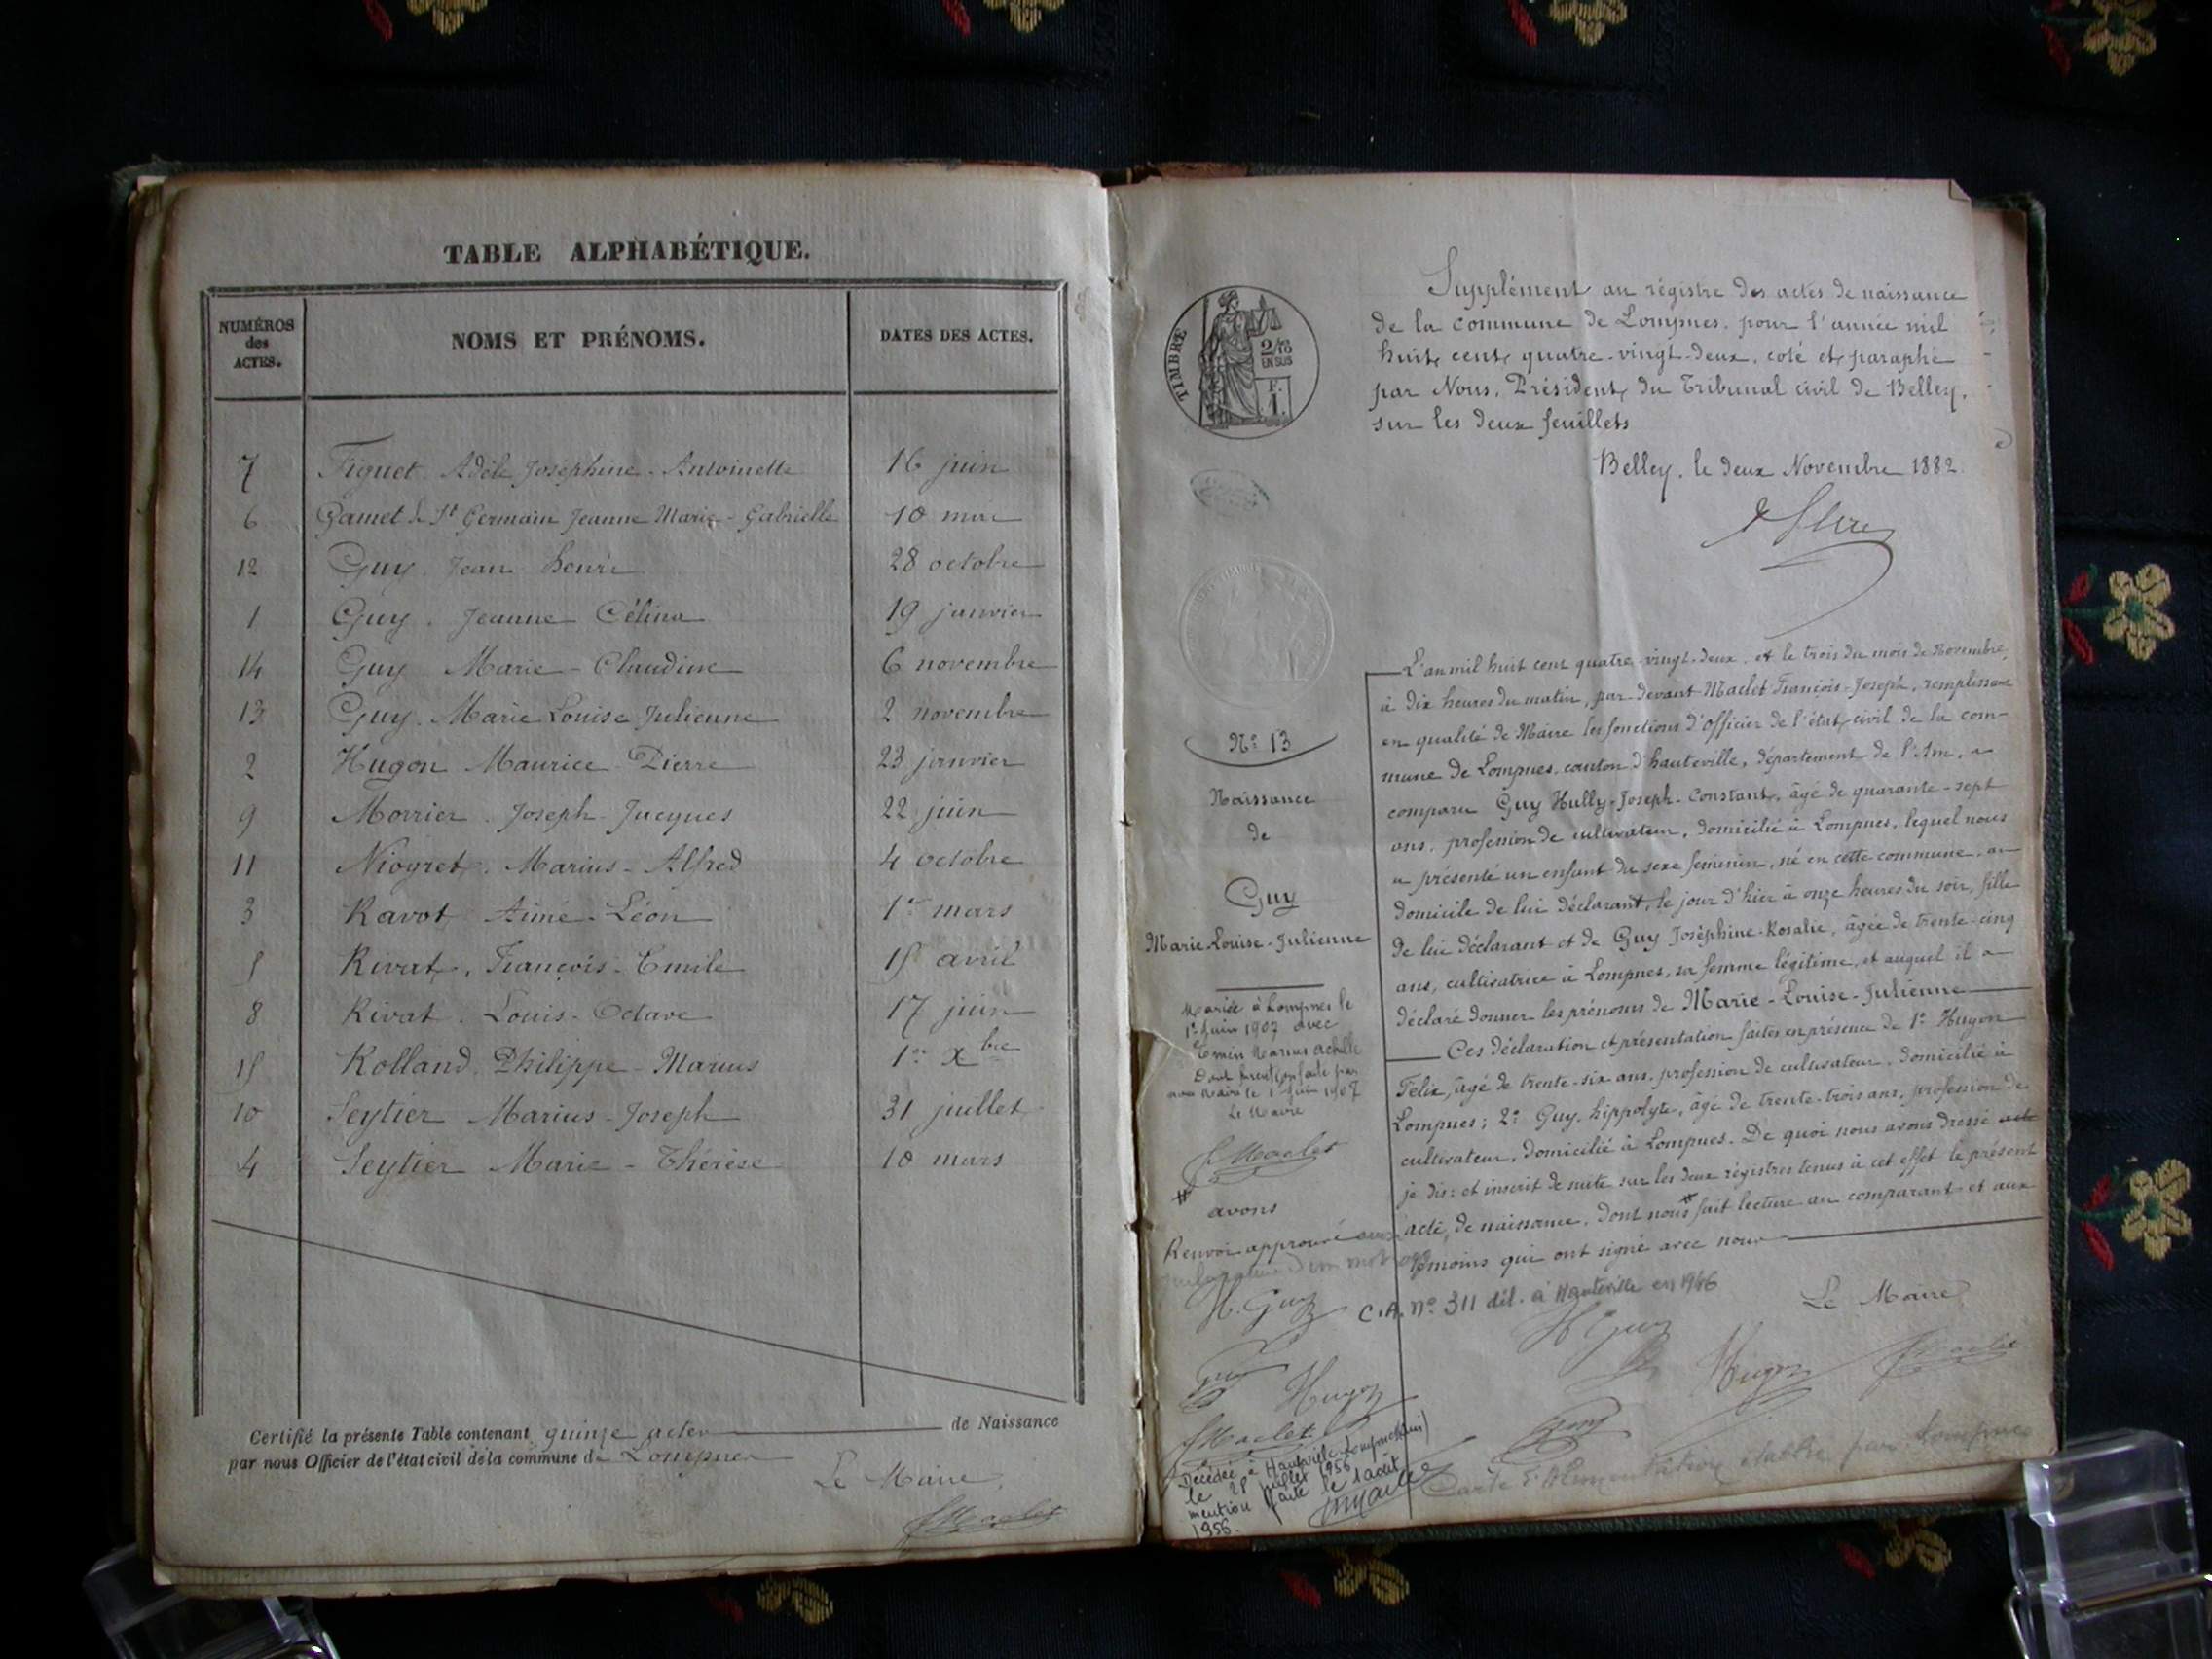 TABLE ALPHABÉTIQUE.
NUMÉROS des ACTES.
NOMS ET PRÉNOMS.
DATES DES ACTES.
7 Figuet Adèle Joséphine-Antoinette 16 juin
6 Gamet de St Germain Jeanne Marie-Gabrielle 10 mai
12 Guy Jean henri 28 octobre
1 Guy Jeanne Célina 19 janvier
14 Guy Marie-Claudine 6 novembre
13 Guy Marie Louise Julienne 2 novembre
2 Hugon Maurice-Pierre 23 janvier
9 Morrier Joseph-Jacques 22 juin
11 Niogret Marius-Alfred 4 octobre
3 Ravot Aimé-Léon 1er mars
5 Rivat, François-Emile 15 avril
8 Rivat. Louis-Octave 17 juin
15 Rolland Philippe-Marius 1er Xbre
10 Seytier Marius-Joseph 31 juillet
4 Seytier Marie-Thérèse 10 mars
Certifié la présente Table contenant quinze actes de Naissance
par nous Officier de l'état civil de la commune de Lompnes
Le Maire,
Maclet
TIMBRE
2/10
EN SUS
F.
1.
Supplément au régistre des actes de naissance
de la commune de Lompnes, pour l'année mil
huit cent quatre-vingt-deux, coté et paraphé
par Nous, Président du Tribunal civil de Belley,
sur les deux feuillets
Belley, le deux Novembre 1882.
No 13
Naissance
de
Guy
Marie-Louise-Julienne
Mariée à Lompnes le
1er Juin 1907 avec
Emin Marius Achille
Dont mention faite par
nous Maire le 1er Juin 1907
Le Maire
Maclet
# avons
Renvoi approuvé
H. Guy
Guy Hugon
Maclet
Décédée à Hauteville-Lompnes (Ain)
le 28 juillet 1956
mention faite le 1 août
1956.
L'an mil huit cent quatre-vingt-deux, et le trois du mois de Novembre,
à dix heures du matin, par-devant Maclet François-Joseph, remplissant
en qualité de Maire les fonctions d'officier de l'état civil de la com-
mune de Lompnes, canton d'hauteville, département de l'Ain, a
comparu Guy Hully-Joseph-Constant, âgé de quarante-sept
ans, profession de cultivateur, domicilié à Lompnes, lequel nous
a présenté un enfant du sexe féminin, né en cette commune, au
domicile de lui déclarant, le jour d'hier à onze heures du soir, fille
de lui déclarant et de Guy Joséphine-Rosalie, âgée de trente-cinq
ans, cultivatrice à Lompnes, sa femme légitime, et auquel il a
déclaré donner les prénoms de Marie-Louise-Julienne
Ces déclaration et présentation faites en présence de 1o Hugon
Félix, âgé de trente-six ans, profession de cultivateur, domicilié à
Lompnes; 2o Guy, hippolyte, âgé de trente-trois ans, profession de
cultivateur, domicilié à Lompnes. De quoi nous avons dressé acte
je dis: et inscrit de suite sur les deux régistres tenus à cet effet le présent
acte de naissance, dont nous # fait lecture au comparant et aux
témoins qui ont signé avec nous
C.A. no 311 dél. à Hauteville en 1946
Le Maire
H Guy Hugon Maclet
Guy
Carte d'Alimentation établie par Lompnes